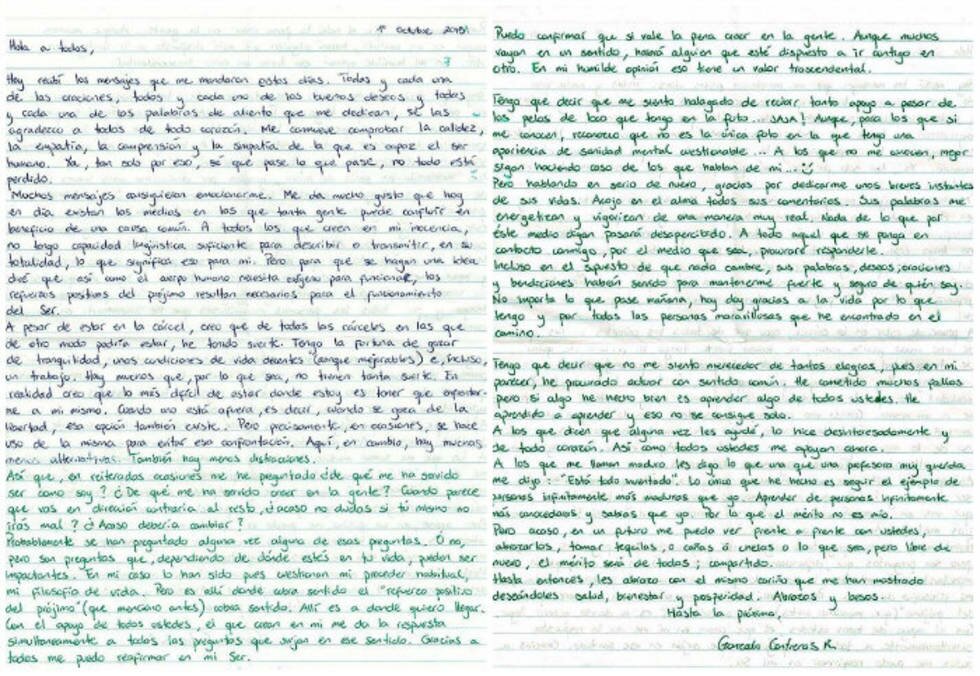 1º Octubre 2015
Hola a todos,
Hoy recibí los mensajes que me mandaron estos días. Todas y cada una
de las oraciones, todos y cada uno de los buenos deseos y todas
y cada una de las palabras de aliento que me dedican, se las
agradezco a todos de todo corazón. Me conmueve comprobar la calidez,
la empatía, la comprensión y la simpatía de la que es capaz el ser
humano. Ya, tan solo por eso, sé que pase lo que pase, no todo está
perdido.
Muchos mensajes consiguieron emocionarme. Me da mucho gusto que hoy
en día existan los medios en los que tanta gente puede confluir en
beneficio de una causa común. A todos los que creen en mi inocencia,
no tengo capacidad lingüística suficiente para describir o transmitir, en su
totalidad, lo que significa eso para mi. Pero para que se hagan una idea
diré que así como el cuerpo humano necesita oxígeno para funcionar, los
refuerzos positivos del prójimo resultan necesarios para el funcionamiento
del Ser.
A pesar de estar en la cárcel, creo que de todas las cárceles en las que
de otro modo podría estar, he tenido suerte. Tengo la fortuna de gozar
de tranquilidad, unas condiciones de vida decentes (aunque mejorables) e, incluso,
un trabajo. Hay muchos que, por lo que sea, no tienen tanta suerte. En
realidad creo que lo más difícil de estar donde estoy es tener que enfrentar-
me a mi mismo. Cuando uno está afuera, es decir, cuando se goza de la
libertad, esa opción también existe. Pero precisamente, en ocasiones, se hace
uso de la misma para evitar esa confrontación. Aquí, en cambio, hay muchas
menos alternativas. También hay menos distracciones.
Así que, en reiteradas ocasiones me he preguntado ¿de qué me ha servido
ser como soy? ¿De qué me ha servido creer en la gente? Cuando parece
que vas en dirección contraria al resto, ¿acaso no dudas si tú mismo no
irás mal? ¿Acaso debería cambiar?
Probablemente se han preguntado alguna vez alguna de esas preguntas. O no,
pero son preguntas que, dependiendo de dónde estés en tu vida, pueden ser
impactantes. En mi caso lo han sido pues cuestionan mi proceder habitual,
mi filosofía de vida. Pero es allí donde cobra sentido el "refuerzo positivo
del prójimo" (que menciono antes) cobra sentido. Allí es a donde quiero llegar.
Con el apoyo de todos ustedes, el que crean en mi me da la respuesta
simultáneamente a todas las preguntas que surjan en ese sentido. Gracias a
todos me puedo reafirmar en mi Ser.
Puedo confirmar que si vale la pena creer en la gente. Aunque muchos
vayan en un sentido, habrá alguien que esté dispuesto a ir contigo en
otro. En mi humilde opinión eso tiene un valor trascendental.
Tengo que decir que me siento halagado de recibir tanto apoyo a pesar de
los pelos de loco que tengo en la foto... JAJA! Aunque, para los que si
me conocen, reconozco que no es la única foto en la que tengo una
apariencia de sanidad mental cuestionable... A los que no me conocen, mejor
sigan haciendo caso de los que hablan de mi...
Pero hablando en serio de nuevo, gracias por dedicarme unos breves instantes
de sus vidas. Acojo en el alma todos sus comentarios. Sus palabras me
energetizan y vigorizan de una manera muy real. Nada de lo que por
éste medio digan pasará desapercibido. A todo aquel que se ponga en
contacto conmigo, por el medio que sea, procuraré responderle.
Incluso en el supuesto de que nada cambie, sus palabras, deseos, oraciones
y bendiciones habrán servido para mantenerme fuerte y seguro de quién soy.
No importa lo que pase mañana, hoy doy gracias a la vida por lo que
tengo y por todas las personas maravillosas que he encontrado en el
camino.
Tengo que decir que no me siento merecedor de tantos elogios, pues en mi
parecer, he procurado actuar con sentido común. He cometido muchos fallos
pero si algo he hecho bien es aprender algo de todos ustedes. He
aprendido a aprender y eso no se consigue solo.
A los que dicen que alguna vez les ayudé, lo hice desinteresadamente y
de todo corazón. Así como todos ustedes me apoyan ahora.
A los que me llaman maduro les digo lo que una que una profesora muy querida
me dijo: "Está todo inventado". Lo único que he hecho es seguir el ejemplo de
personas infinitamente más maduras que yo. Aprender de personas infinitamente
más conocedoras y sabias que yo. Por lo que el mérito no es mío.
Pero acaso, en un futuro me puedo ver frente a frente con ustedes,
abrazarlos, tomar tequilas, o cañas ó chelas o lo que sea, pero libre de
nuevo, el mérito será de todos; compartido.
Hasta entonces, les abrazo con el mismo cariño que me han mostrado
deseándoles salud, bienestar y prosperidad. Abrazos y besos.
Hasta la próxima,
Gonzalo Contreras R.